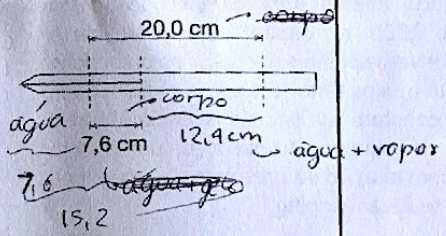 20,0 cm
corpo
corpo
água
7,6 cm
12,4cm
água + vapor
7,6
água+gás
15,2